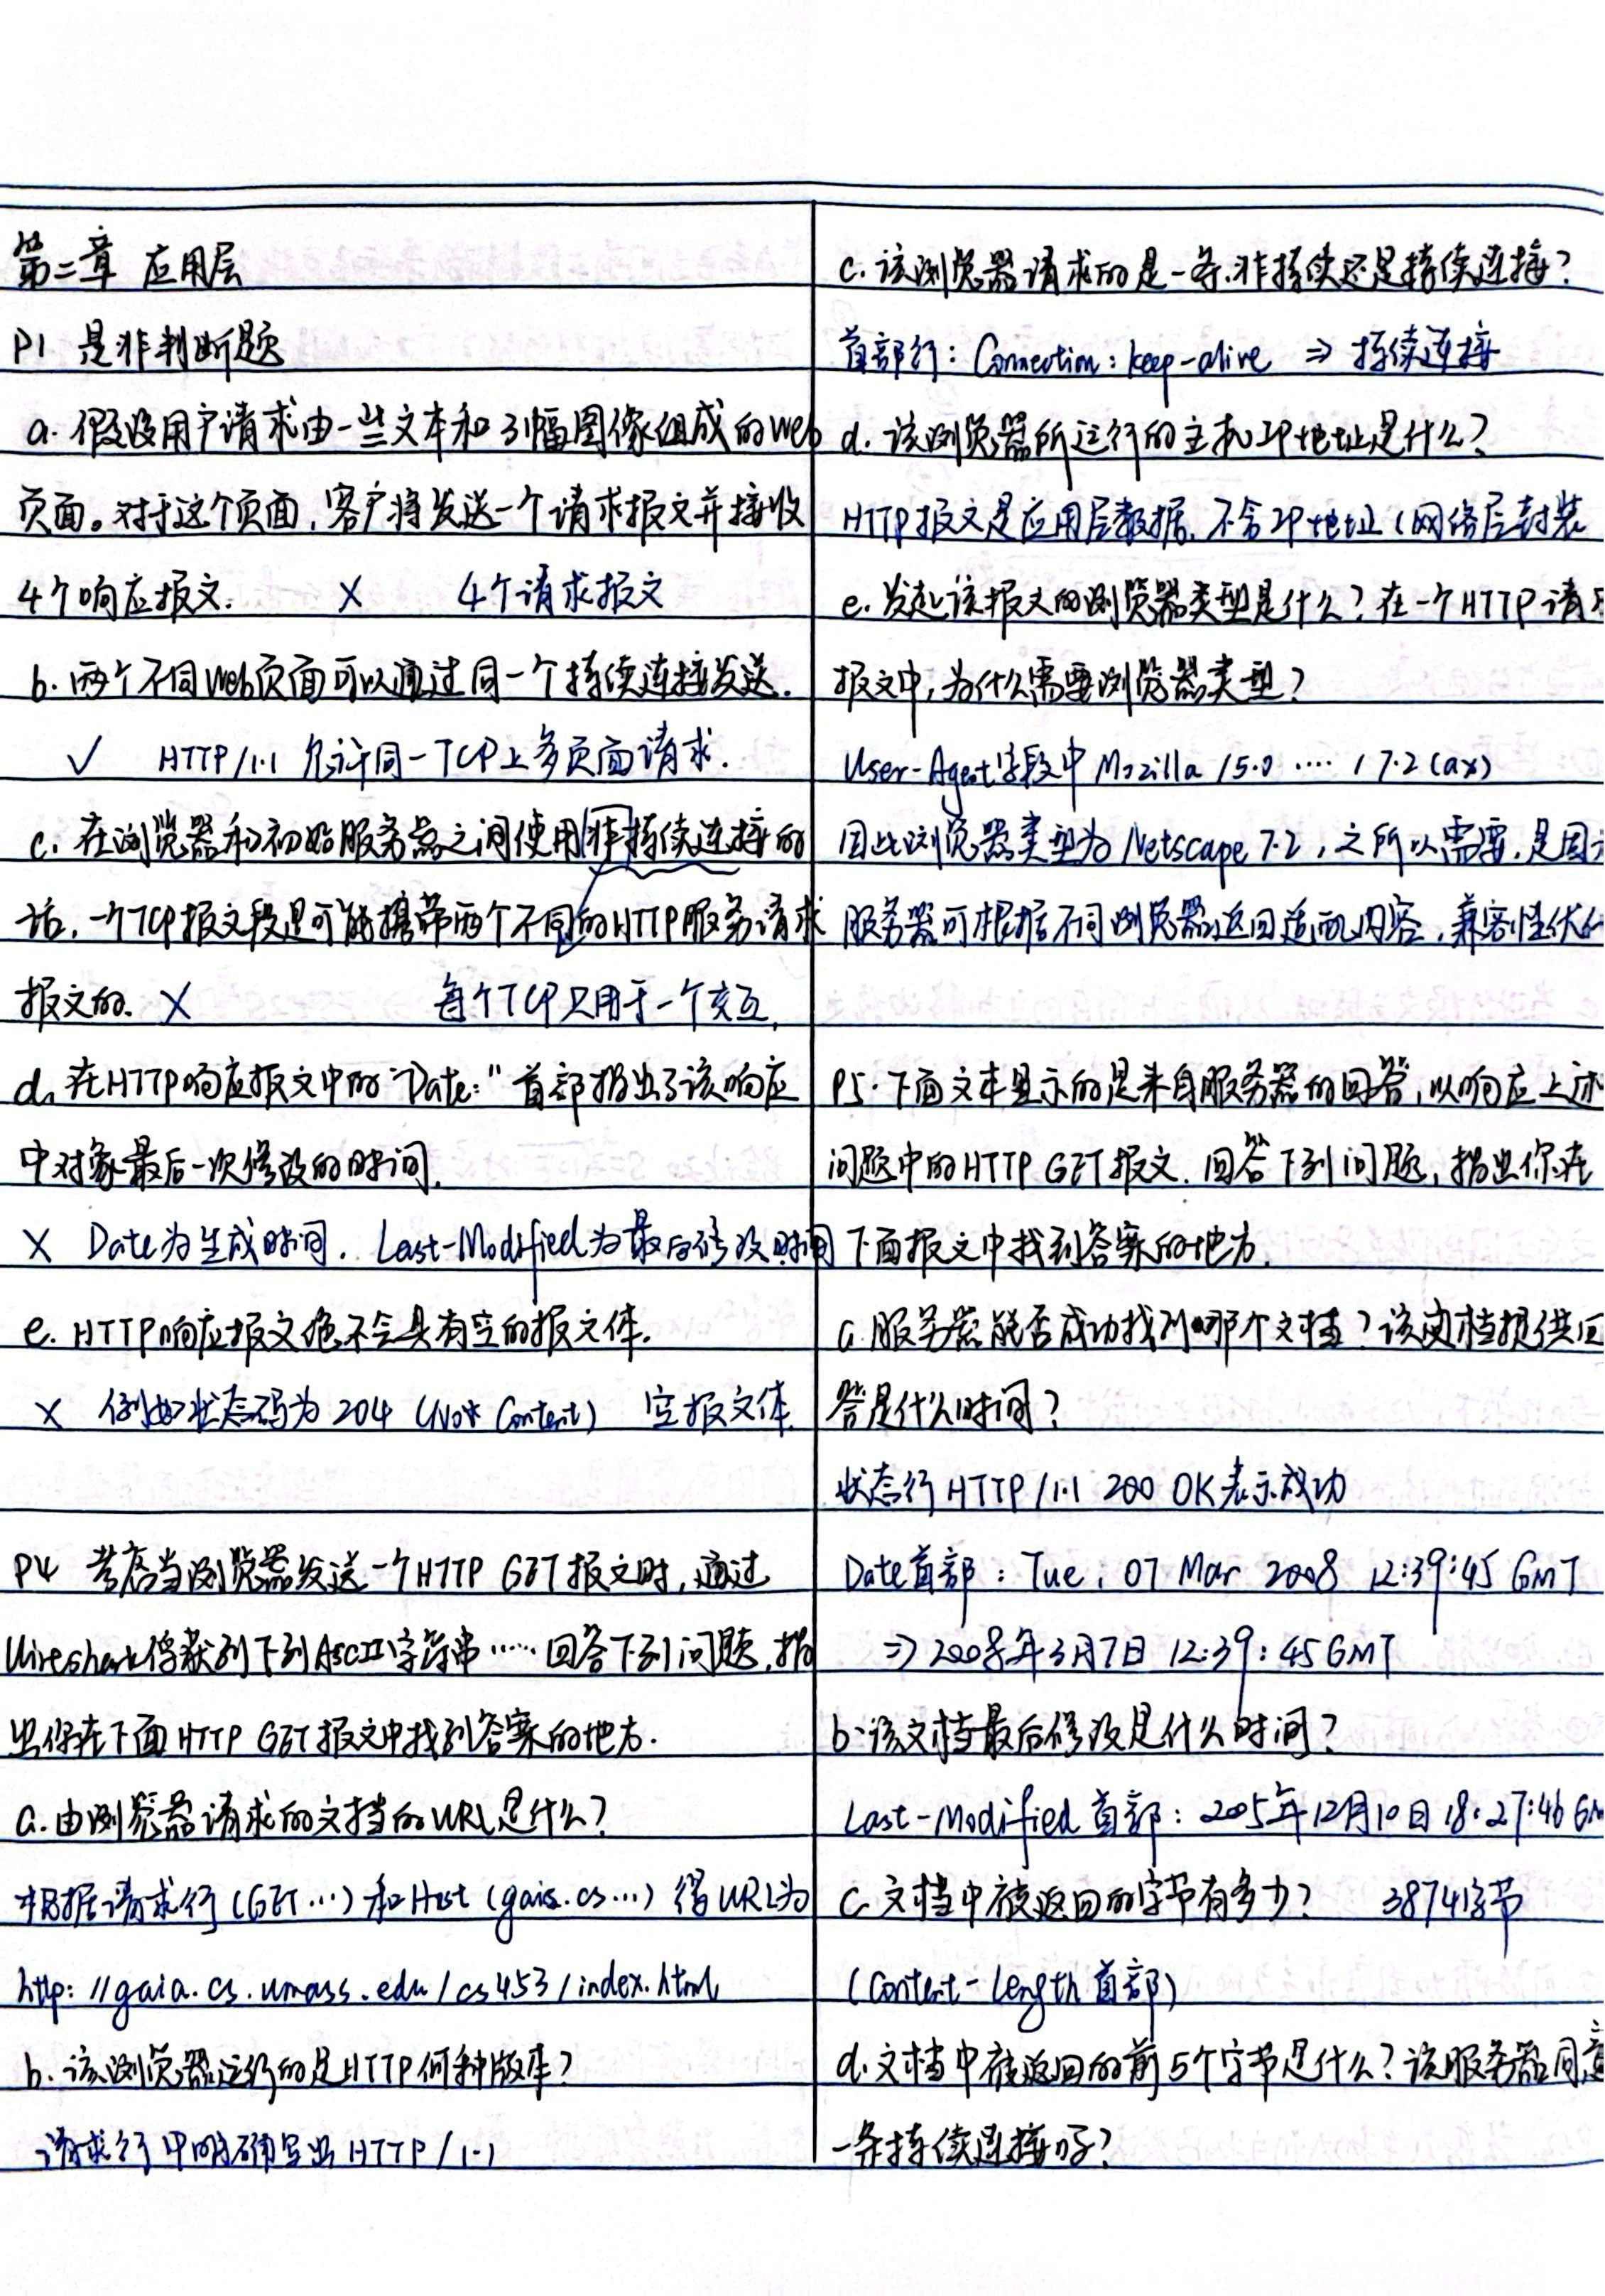 第二章 应用层
P1 是非判断题
a. 假设用户请求由一些文本和3幅图像组成的Web
页面。对于这个页面,客户将发送一个请求报文并接收
4个响应报文. × 4个请求报文
b. 两个不同Web页面可以通过同一个持续连接发送.
√ HTTP/1.1 允许同一TCP上多页面请求.
c. 在浏览器和初始服务器之间使用非持续连接的
话,一个TCP报文段是可能携带两个不同的HTTP服务请求
报文的. × 每个TCP只用于一个交互.
d. 在HTTP响应报文中的“Date:”首部指出了该响应
中对象最后一次修改的时间.
× Date为生成时间. Last-Modified为最后修改时间
e. HTTP响应报文绝不会具有空的报文体.
× 例如状态码为204 (Not Content) 空报文体.
P4 考虑当浏览器发送一个HTTP GET报文时,通过
Wireshark俘获到下列ASCII字符串……回答下列问题,指
出你在下面HTTP GET报文中找到答案的地方.
a. 由浏览器请求的文档的URL是什么?
根据请求行(GET…)和Host(gaia.cs…)得URL为
http://gaia.cs.umass.edu/cs453/index.html
b. 该浏览器运行的是HTTP何种版本?
请求行中明确写出HTTP/1.1
c. 该浏览器请求的是一条非持续还是持续连接?
首部行: Connection: keep-alive ⇒ 持续连接
d. 该浏览器所运行的主机IP地址是什么?
HTTP报文是应用层数据,不含IP地址(网络层封装
e. 发起该报文的浏览器类型是什么?在一个HTTP请求
报文中,为什么需要浏览器类型?
User-Agent字段中Mozilla/5.0 ····/7.2 (ax)
因此浏览器类型为Netscape 7.2,之所以需要,是因为
服务器可根据不同浏览器返回适配内容,兼容性优化
P5. 下面文本显示的是来自服务器的回答,以响应上述
问题中的HTTP GET报文. 回答下列问题,指出你在
下面报文中找到答案的地方.
a. 服务器能否成功找到哪个文档?该文档提供回
答是什么时间?
状态行HTTP/1.1 200 OK表示成功
Date首部: Tue, 07 Mar 2008 12:39:45 GMT
⇒ 2008年3月7日 12:39:45 GMT
b. 该文档最后修改是什么时间?
Last-Modified首部: 2005年12月10日 18:27:46 GM
c. 文档中被返回的字节有多少? 3874字节
(Content-Length首部)
d. 文档中被返回的前5个字节是什么?该服务器同意
一条持续连接吗?